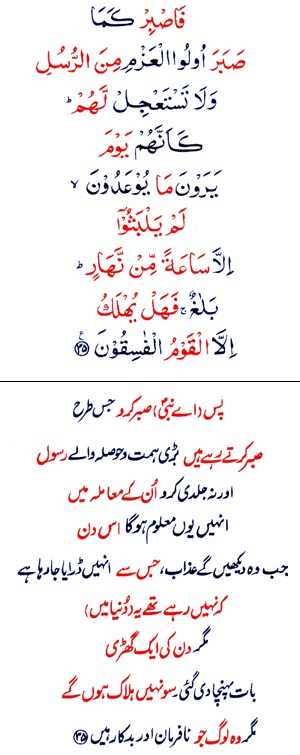 فَاصْبِرْ كَمَا
صَبَرَ اُولُوا الْعَزْمِ مِنَ الرُّسُلِ
وَلَا تَسْتَعْجِلْ لَّهُمْ ؕ
كَاَنَّهُمْ يَوْمَ
يَرَوْنَ مَا يُوْعَدُوْنَ ۙ
لَمْ يَلْبَثُوْۤا
اِلَّا سَاعَةً مِّنْ نَّهَارٍ ؕ
بَلٰغٌ ۚ فَهَلْ يُهْلَكُ
اِلَّا الْقَوْمُ الْفٰسِقُوْنَ ﴿۳۵﴾ ع
پس (اے نبیؐ) صبر کرو جس طرح
صبر کرتے رہے ہیں بڑی ہمت و حوصلہ والے رسول
اور نہ جلدی کرو اُن کے معاملہ میں
انہیں یوں معلوم ہوگا اس دن
جب وہ دیکھیں گے عذاب، جس سے انہیں ڈرایا جارہا ہے
کہ نہیں رہے تھے یہ (دُنیا میں)
مگر دن کی ایک گھڑی
بات پہنچا دی گئی۔ سو نہیں ہلاک ہوں گے
مگر وہ لوگ جو نافرمان اور بدکار ہیں ﴿۳۵﴾